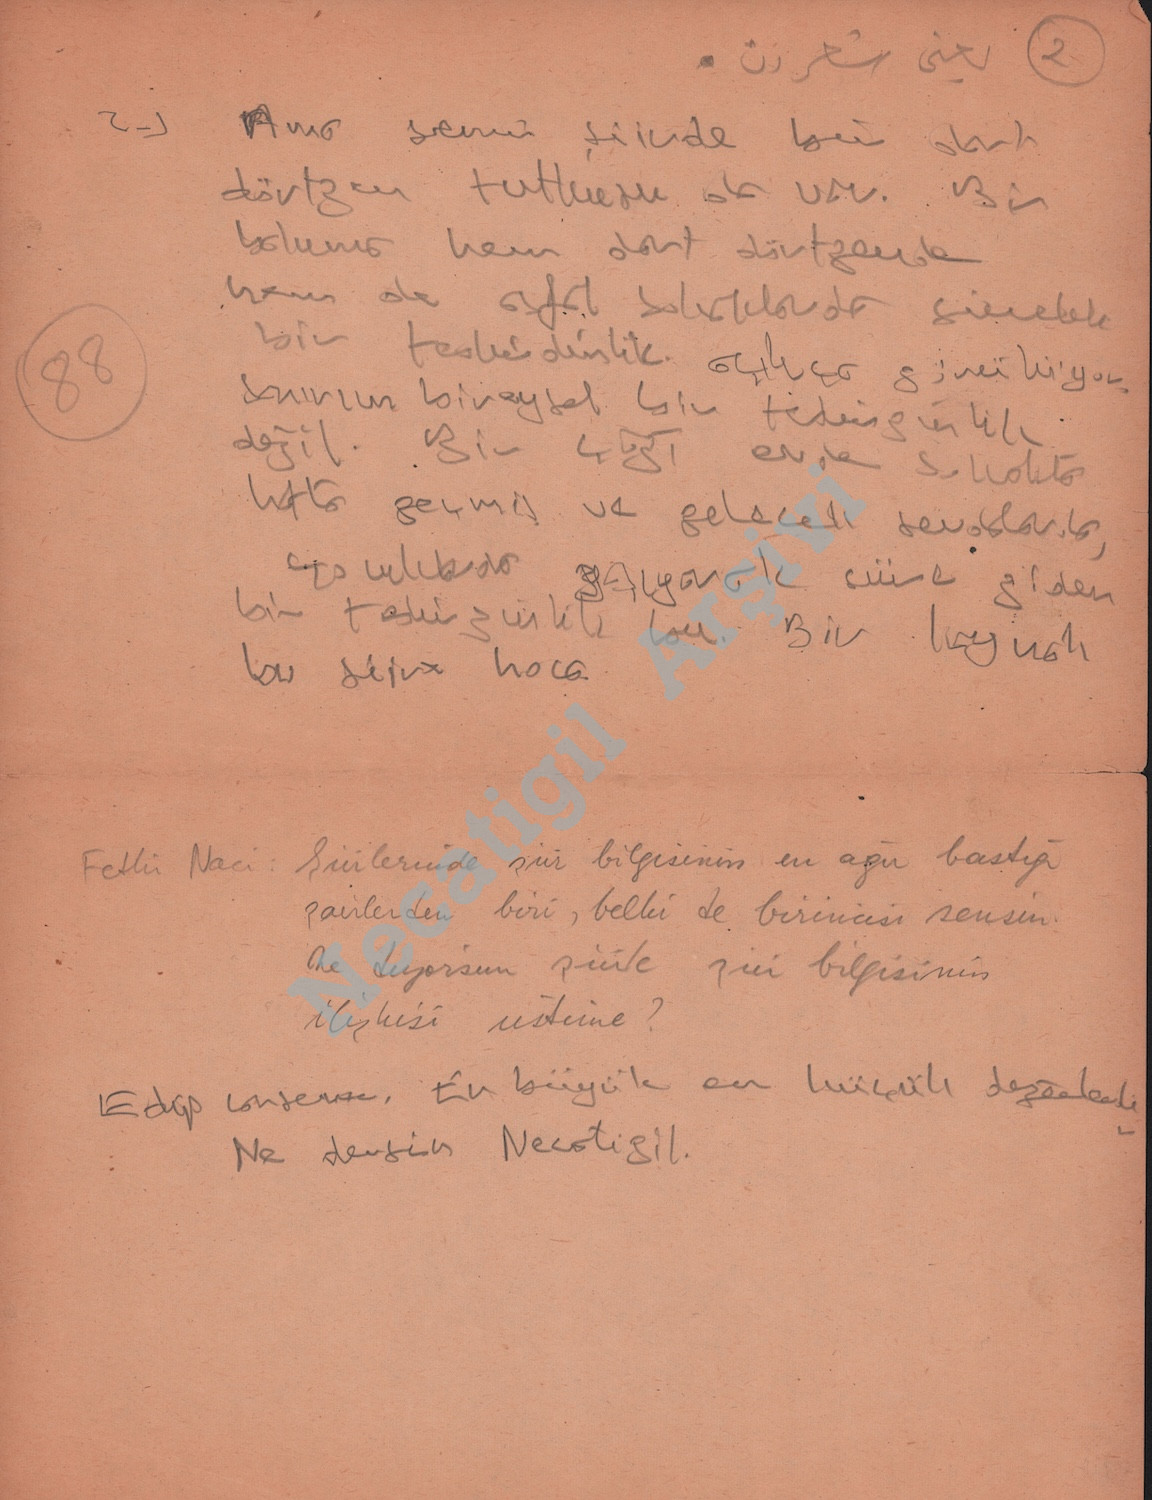 يعنى شعر زن . 2
2-) Ama senin şiirde bir dar
dörtgen tutkusu da var. Bir
bakıma hem dar dörtgende
hem de asfalt sokaklarda giderek
bir tedirginlik açıkça görülüyor.
Sanırım bireysel bir tedirginlik
değil. Bir evde sokakta
hatta geçmiş ve gelecek
giden
bir tedirginlik bu. Bir kaynak
bu şiire hoca
88
Fethi Naci: Şiirlerinde şiir bilgisinin en ağır bastığı
şairlerden biri, belki de birincisi sensin.
Ne diyorsun şiirle şiir bilgisinin
ilişkisi üstüne?
Edip Cansever. En büyük en küçük
Ne dersin Necatigil.
Necatigil Arşivi